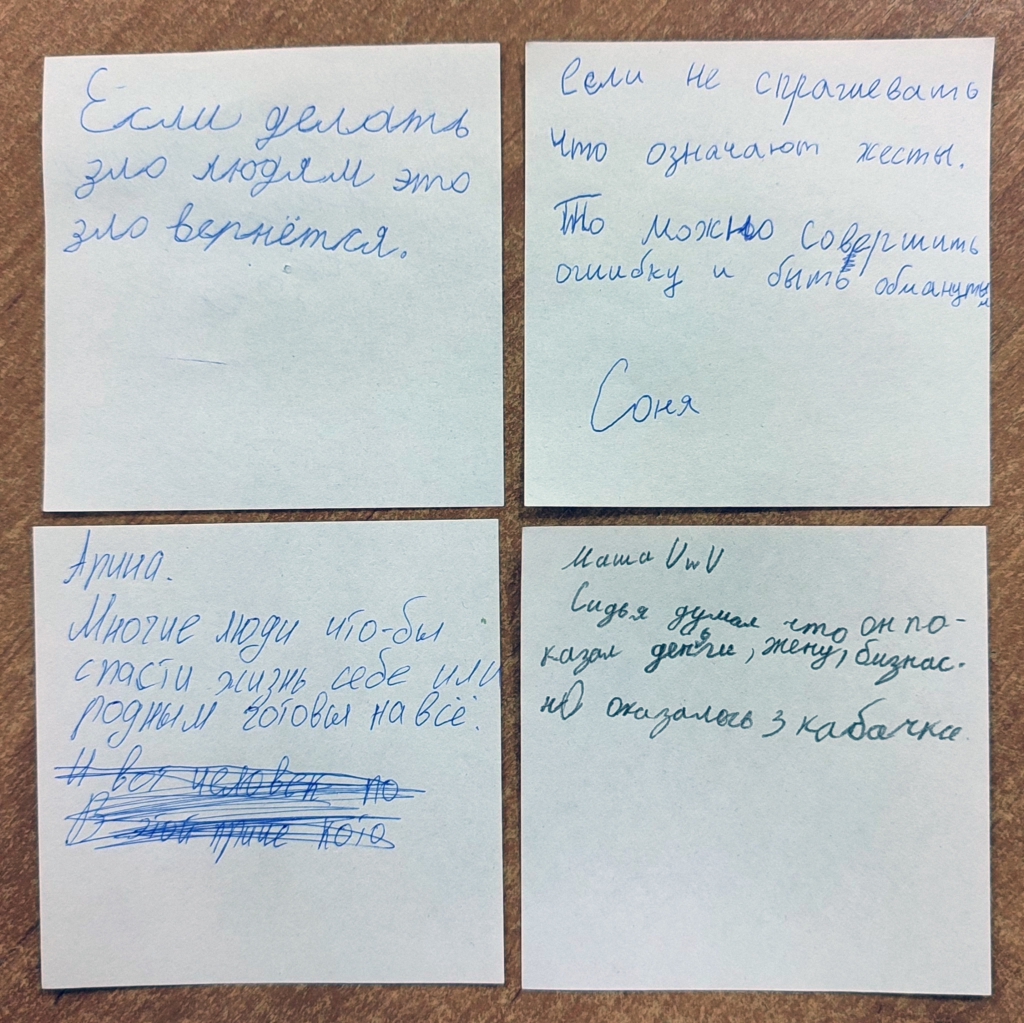 Если делать
зло людям это
зло вернётся.
Если не спрашевать
что означают жесты.
То можно совершить
ошибку и быть обманутым
Соня
Арина.
Многие люди что-бы
спасти жизнь себе или
родным готовы на всё.
И вот человек по
В этой притче кота
Маша UwU
Судья думал что он по-
казал деньги, жену, бизнас.
но оказалось 3 кабачка.